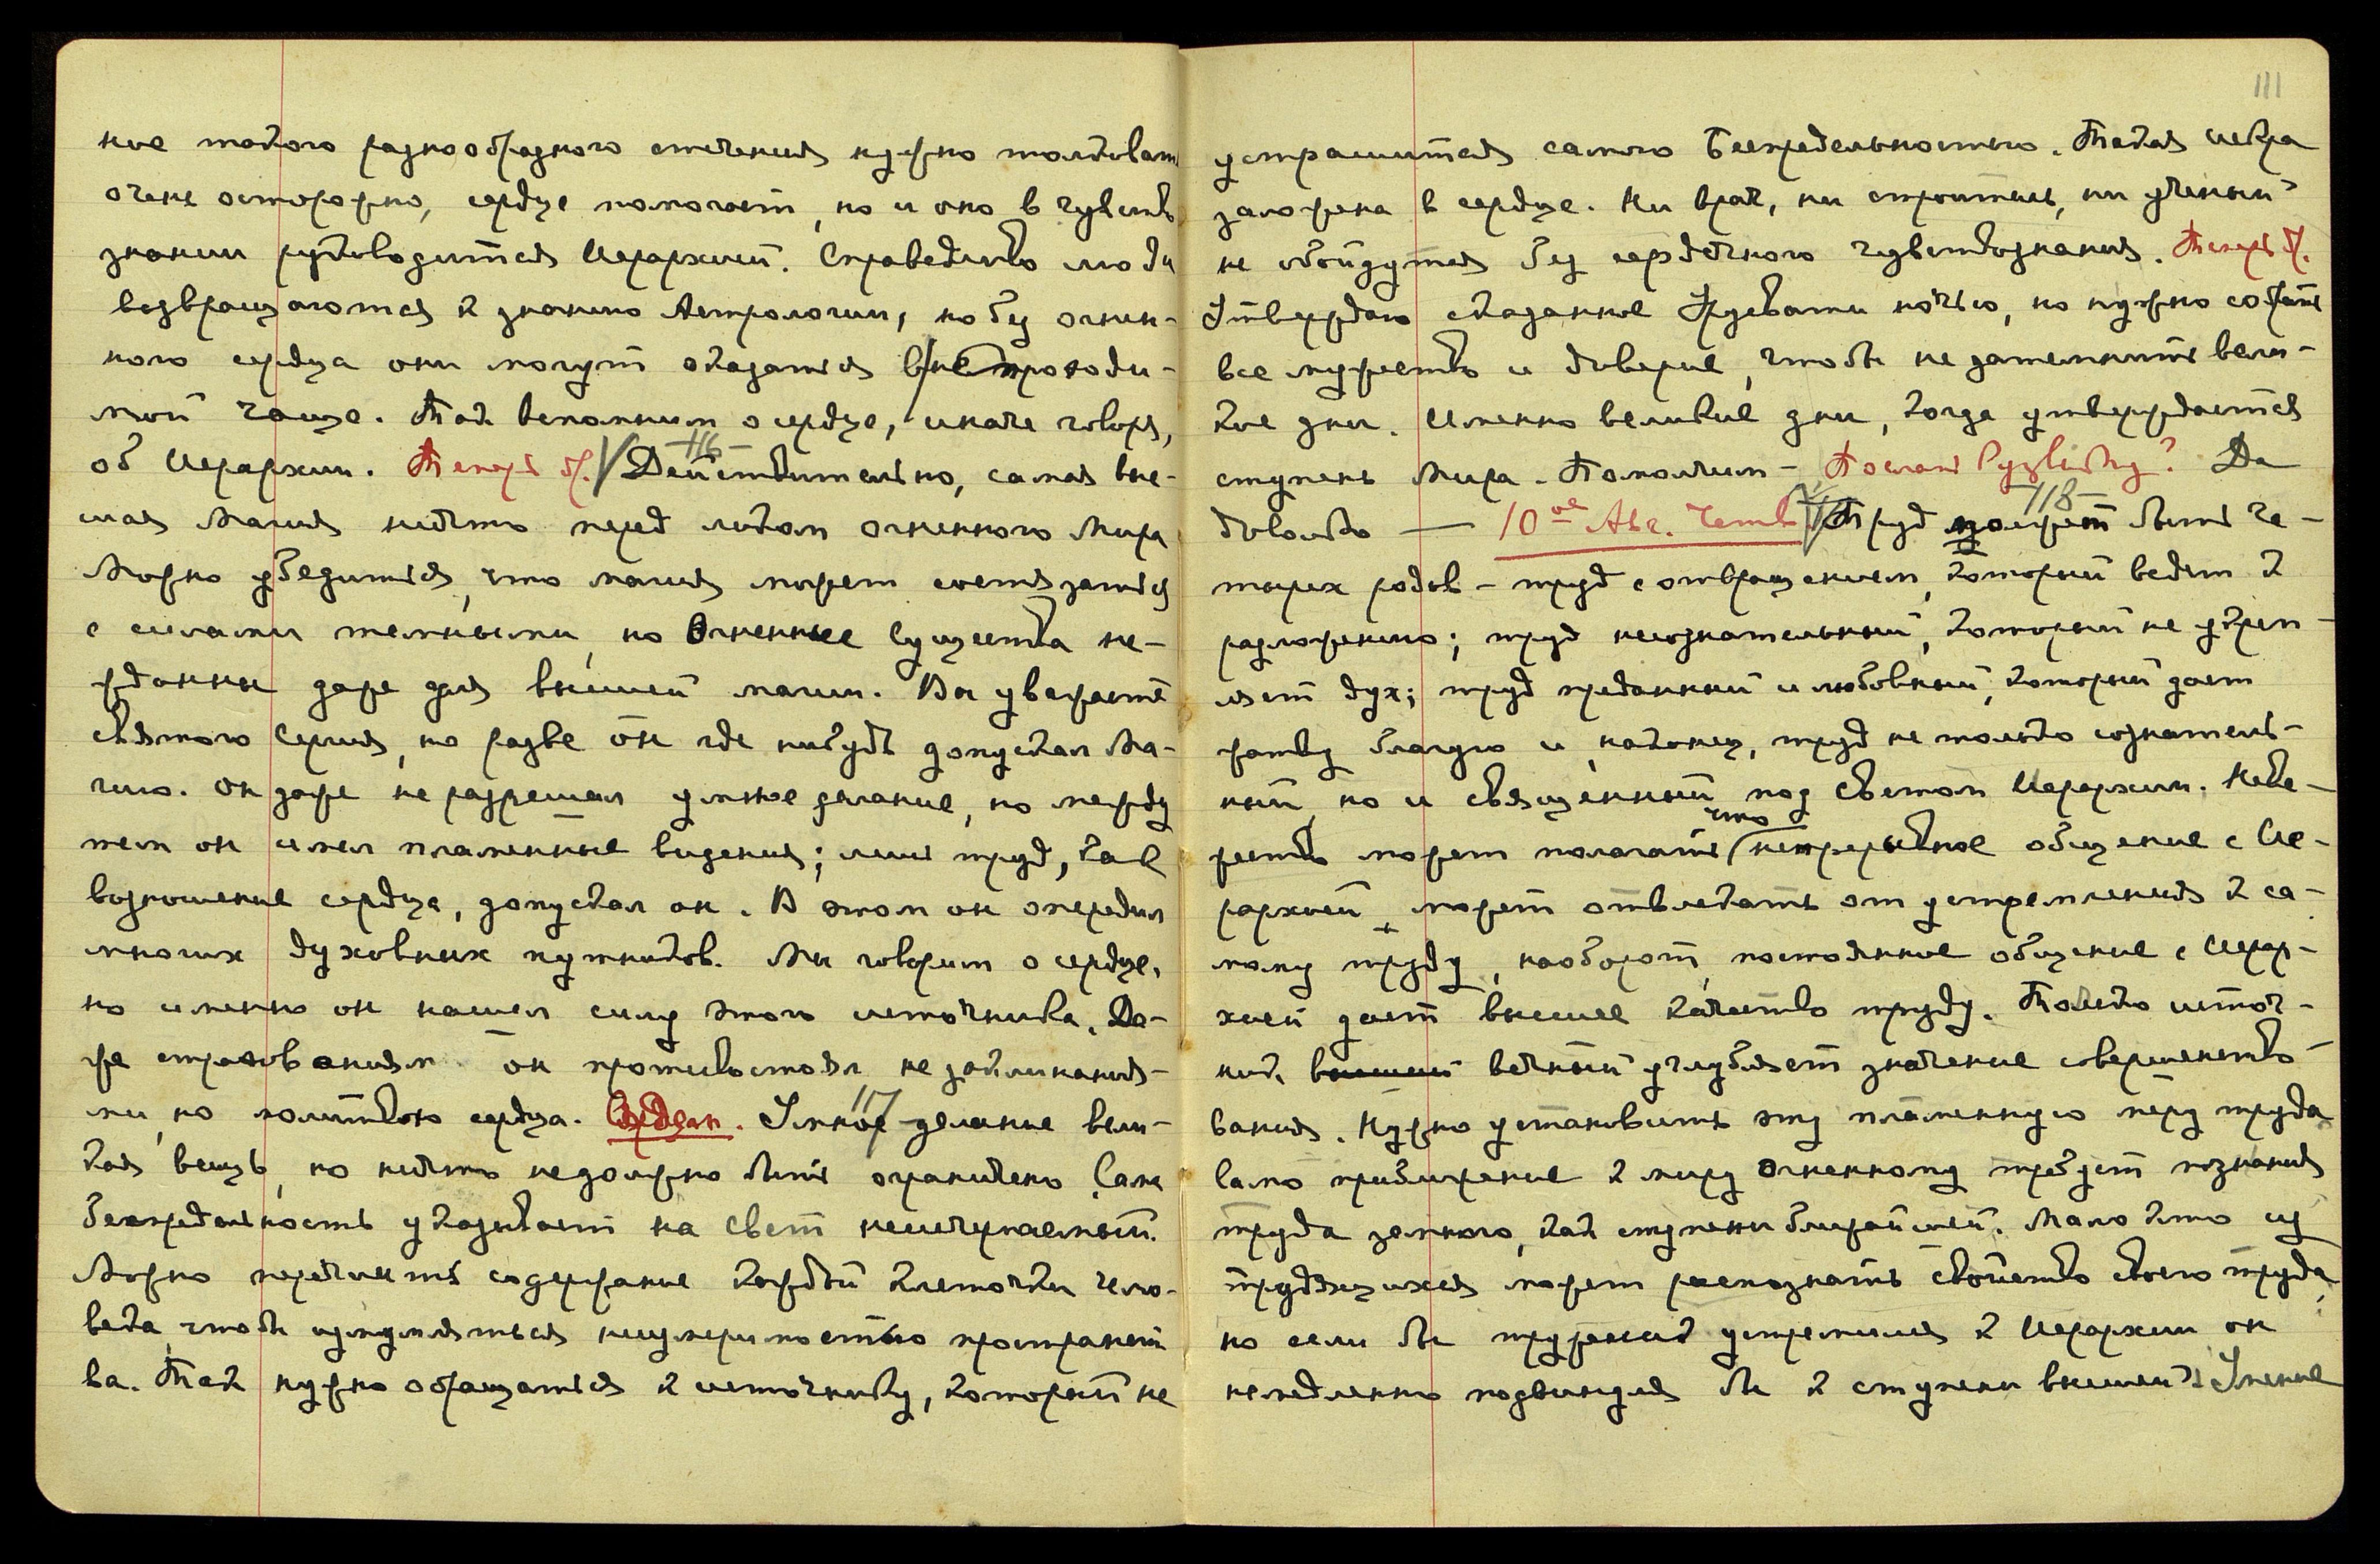 ние такого разнообразного стечения нужно толковать
очень осторожно, сердце помогает, но и оно в чувств
знании руководится Иерархией. Справедливо люди
возвращаются к знанию Астрологии, но без огнен-
ного сердца они могут оказаться в непроходи-
мой чаще. Так вспомним о сердце, иначе говоря,
об Иерархии. Теперь др. 116 Действительно, самая выс-
шая Магия ничто перед ликом огненного Мира
Можно убедиться, что магия может состязаться
с силами темными, но Огненные Существа не-
жданны даже для высшей магии. Вы уважаете
святого Сергия, но разве он где нибудь допускал Ма-
гию. Он даже не разрешал умное делание, но между
тем он имел пламенные видения; лишь труд, как
возношение сердца, допускал он. В этом он опередил
многих духовных путников. Мы говорим о сердце,
но именно он нашел силу этого источника. Да-
же страхованиям он противостоял не заклинания-
ми, но молитвою сердца. 117 Умное делание вели-
кая вещь, но ничто не должно быть ограничено. Сама
Беспредельность указывает на Свет неисчерпаемый.
Можно перечислять содержание каждой клеточки чело-
века, чтобы изумляться неизмеримостью пространст
ва. Так нужно обращаться к источнику, который не
111
устрашится самого Беспредельностью. Такая искра
заложена в сердце. Ни врач, ни строитель, ни ученый
не обойдутся без сердечного чувствознания. Теперь др.
Утверждаю сказанное Удраей ночью, но нужно собрать
все мужество и доверие, чтобы не затемнить вели-
кие дни. Именно великие дни, когда утверждается
ступень Мира. Помолчим – Послать Рузвельту? Да
Довольно — 10ое Авг. Четв 118 Труд может быть че-
тырех родов – труд с отвращением, который ведет к
разложению; труд несознательный, который не укреп-
ляет дух; труд преданный и любовный, который дает
жатву благую и, наконец, труд не только сознатель-
ный, но и священный под Светом Иерархии. Неве-
жество может полагать, что непрерывное общение с Ие-
рархией может отвлекать от устремления к са-
мому труду, наоборот, постоянное общение с Иерар-
хией дает высшее качество труду. Только источ-
ник вечный углубляет значение совершенство-
вания. Нужно установить эту пламенную меру труда
Само приближение к миру Огненному требует познания
труда земного, как ступени ближайшей. Мало кто из
трудящихся может распознать свойство своего труда,
но если бы труженик устремился к Иерархии он
немедленно подвинулся бы к ступени высшей. Умение